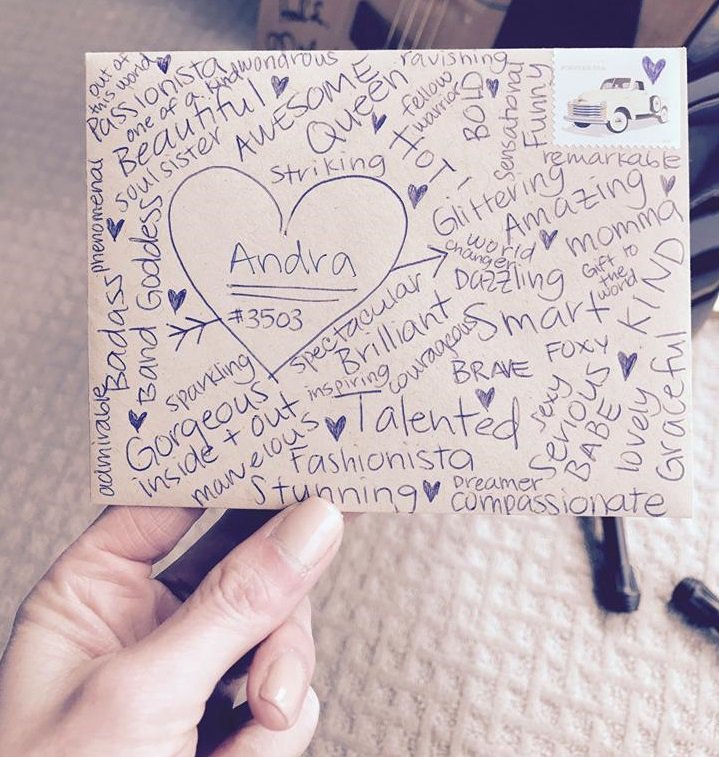 out of
this world
Passionista
one of a kind
wondrous
ravishing
Beautiful
AWESOME
Queen
fellow
warrior
BOLD
sensational
Funny
soul sister
HOT
striking
remarkable
phenomenal
Glittering
Amazing
momma
Badass
Band Goddess
Andra
#3503
world
changer
DAZZLING
Gift to
the
world
KIND
spectacular
Brilliant
courageous
Smart
sparkling
inspiring
BRAVE
FOXY
admirable
Gorgeous
inside + out
marvelous
Talented
sexy
Serious
BABE
lovely
Graceful
Fashionista
Stunning
Dreamer
compassionate